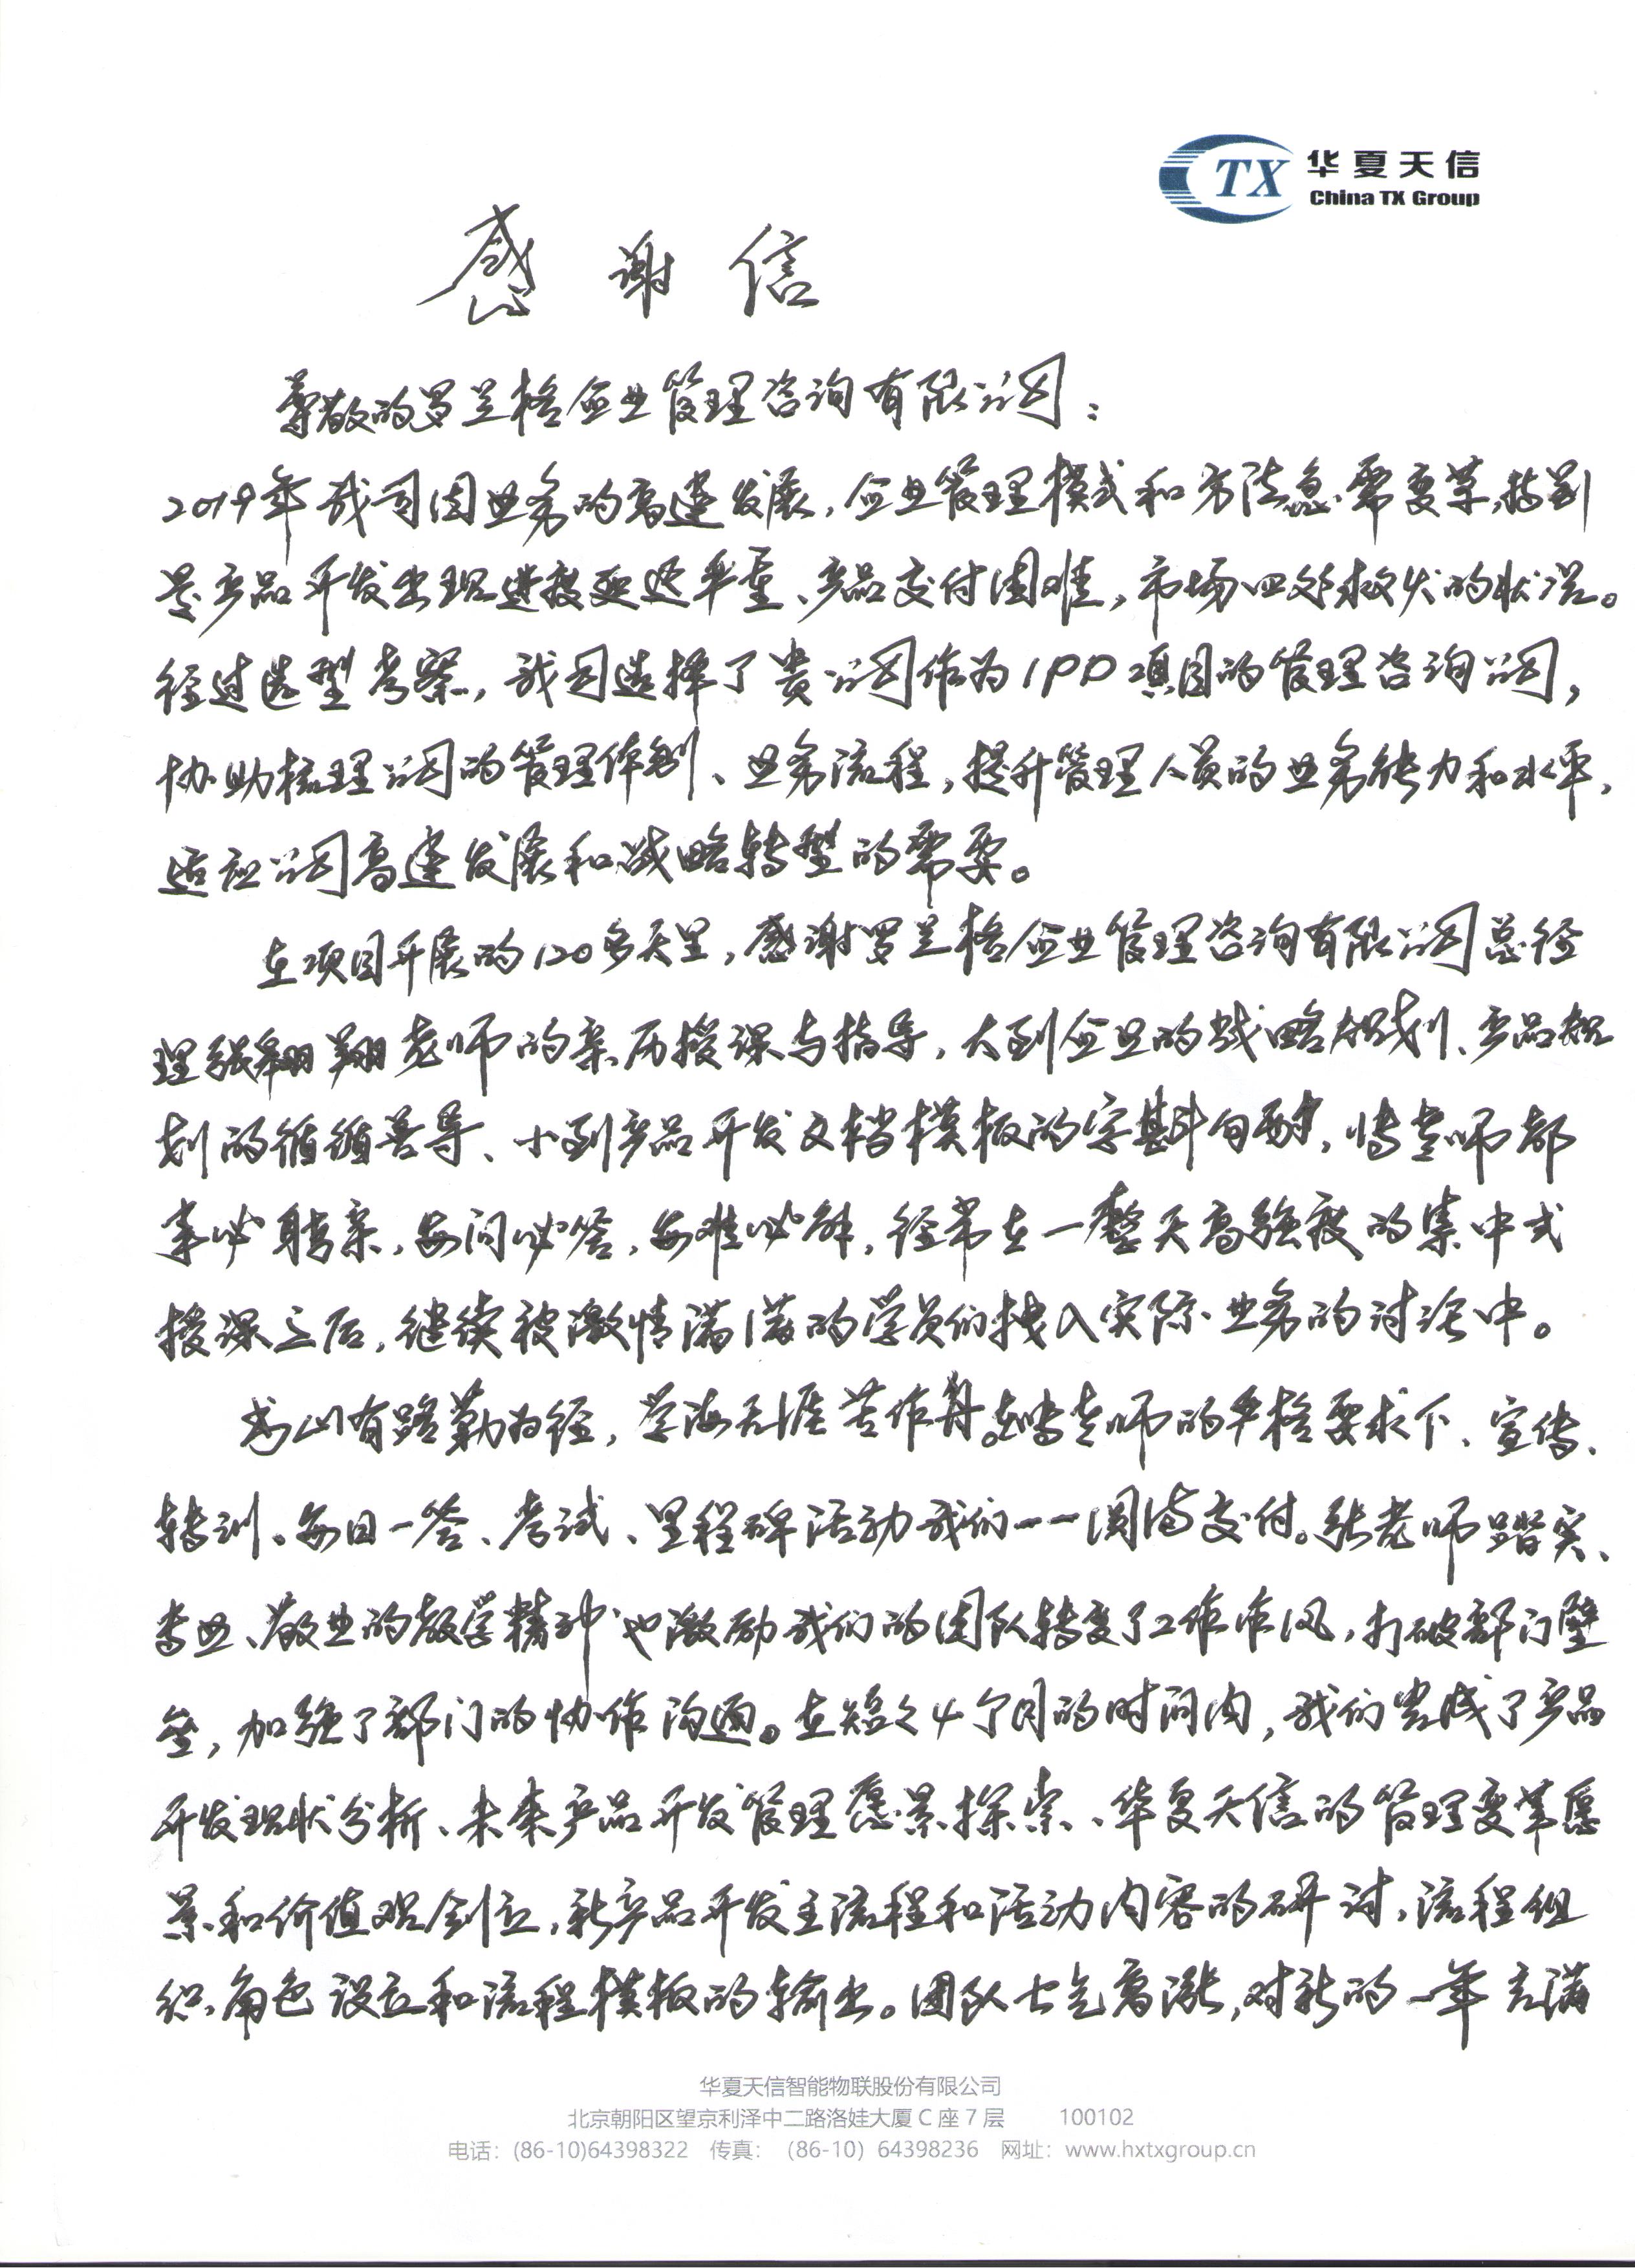 TX 华夏天信
China TX Group
感谢信
尊敬的罗兰格企业管理咨询有限公司：
2019年我司因业务的高速发展，企业管理模式和方法急需变革，特别
是产品开发出现进度延迟严重、产品交付困难，市场四处救火的状况。
经过选型考察，我司选择了贵公司作为IPD项目的管理咨询公司，
协助梳理公司的管理体制、业务流程，提升管理人员的业务能力和水平，
适应公司高速发展和战略转型的需要。
在项目开展的120多天里，感谢罗兰格企业管理咨询有限公司总经
理张翱翔老师的亲历授课与指导，大到企业的战略规划、产品规
划的循循善导、小到产品开发文档模板的字斟句酌，张老师都
事必躬亲，每问必答，每难必解，经常在一整天高强度的集中式
授课之后，继续被激情满满的学员们拽入实际业务的讨论中。
书山有路勤为径，学海无涯苦作舟。在张老师的严格要求下、宣传、
转训、每日一答、考试、里程碑活动我们一一圆满交付。张老师踏实、
专业、敬业的教学精神也激励我们的团队转变了工作作风，打破部门壁
垒，加强了部门的协作沟通。在短々4个月的时间内，我们完成了产品
开发现状分析、未来产品开发管理愿景探索、华夏天信的管理变革愿
景和价值观创立，新产品开发主流程和活动内容的研讨，流程组
织、角色设立和流程模板的输出。团队士气高涨，对新的一年充满
华夏天信智能物联股份有限公司
北京朝阳区望京利泽中二路洛娃大厦 C 座 7 层 100102
电话：(86-10)64398322 传真：(86-10) 64398236 网址：www.hxtxgroup.cn